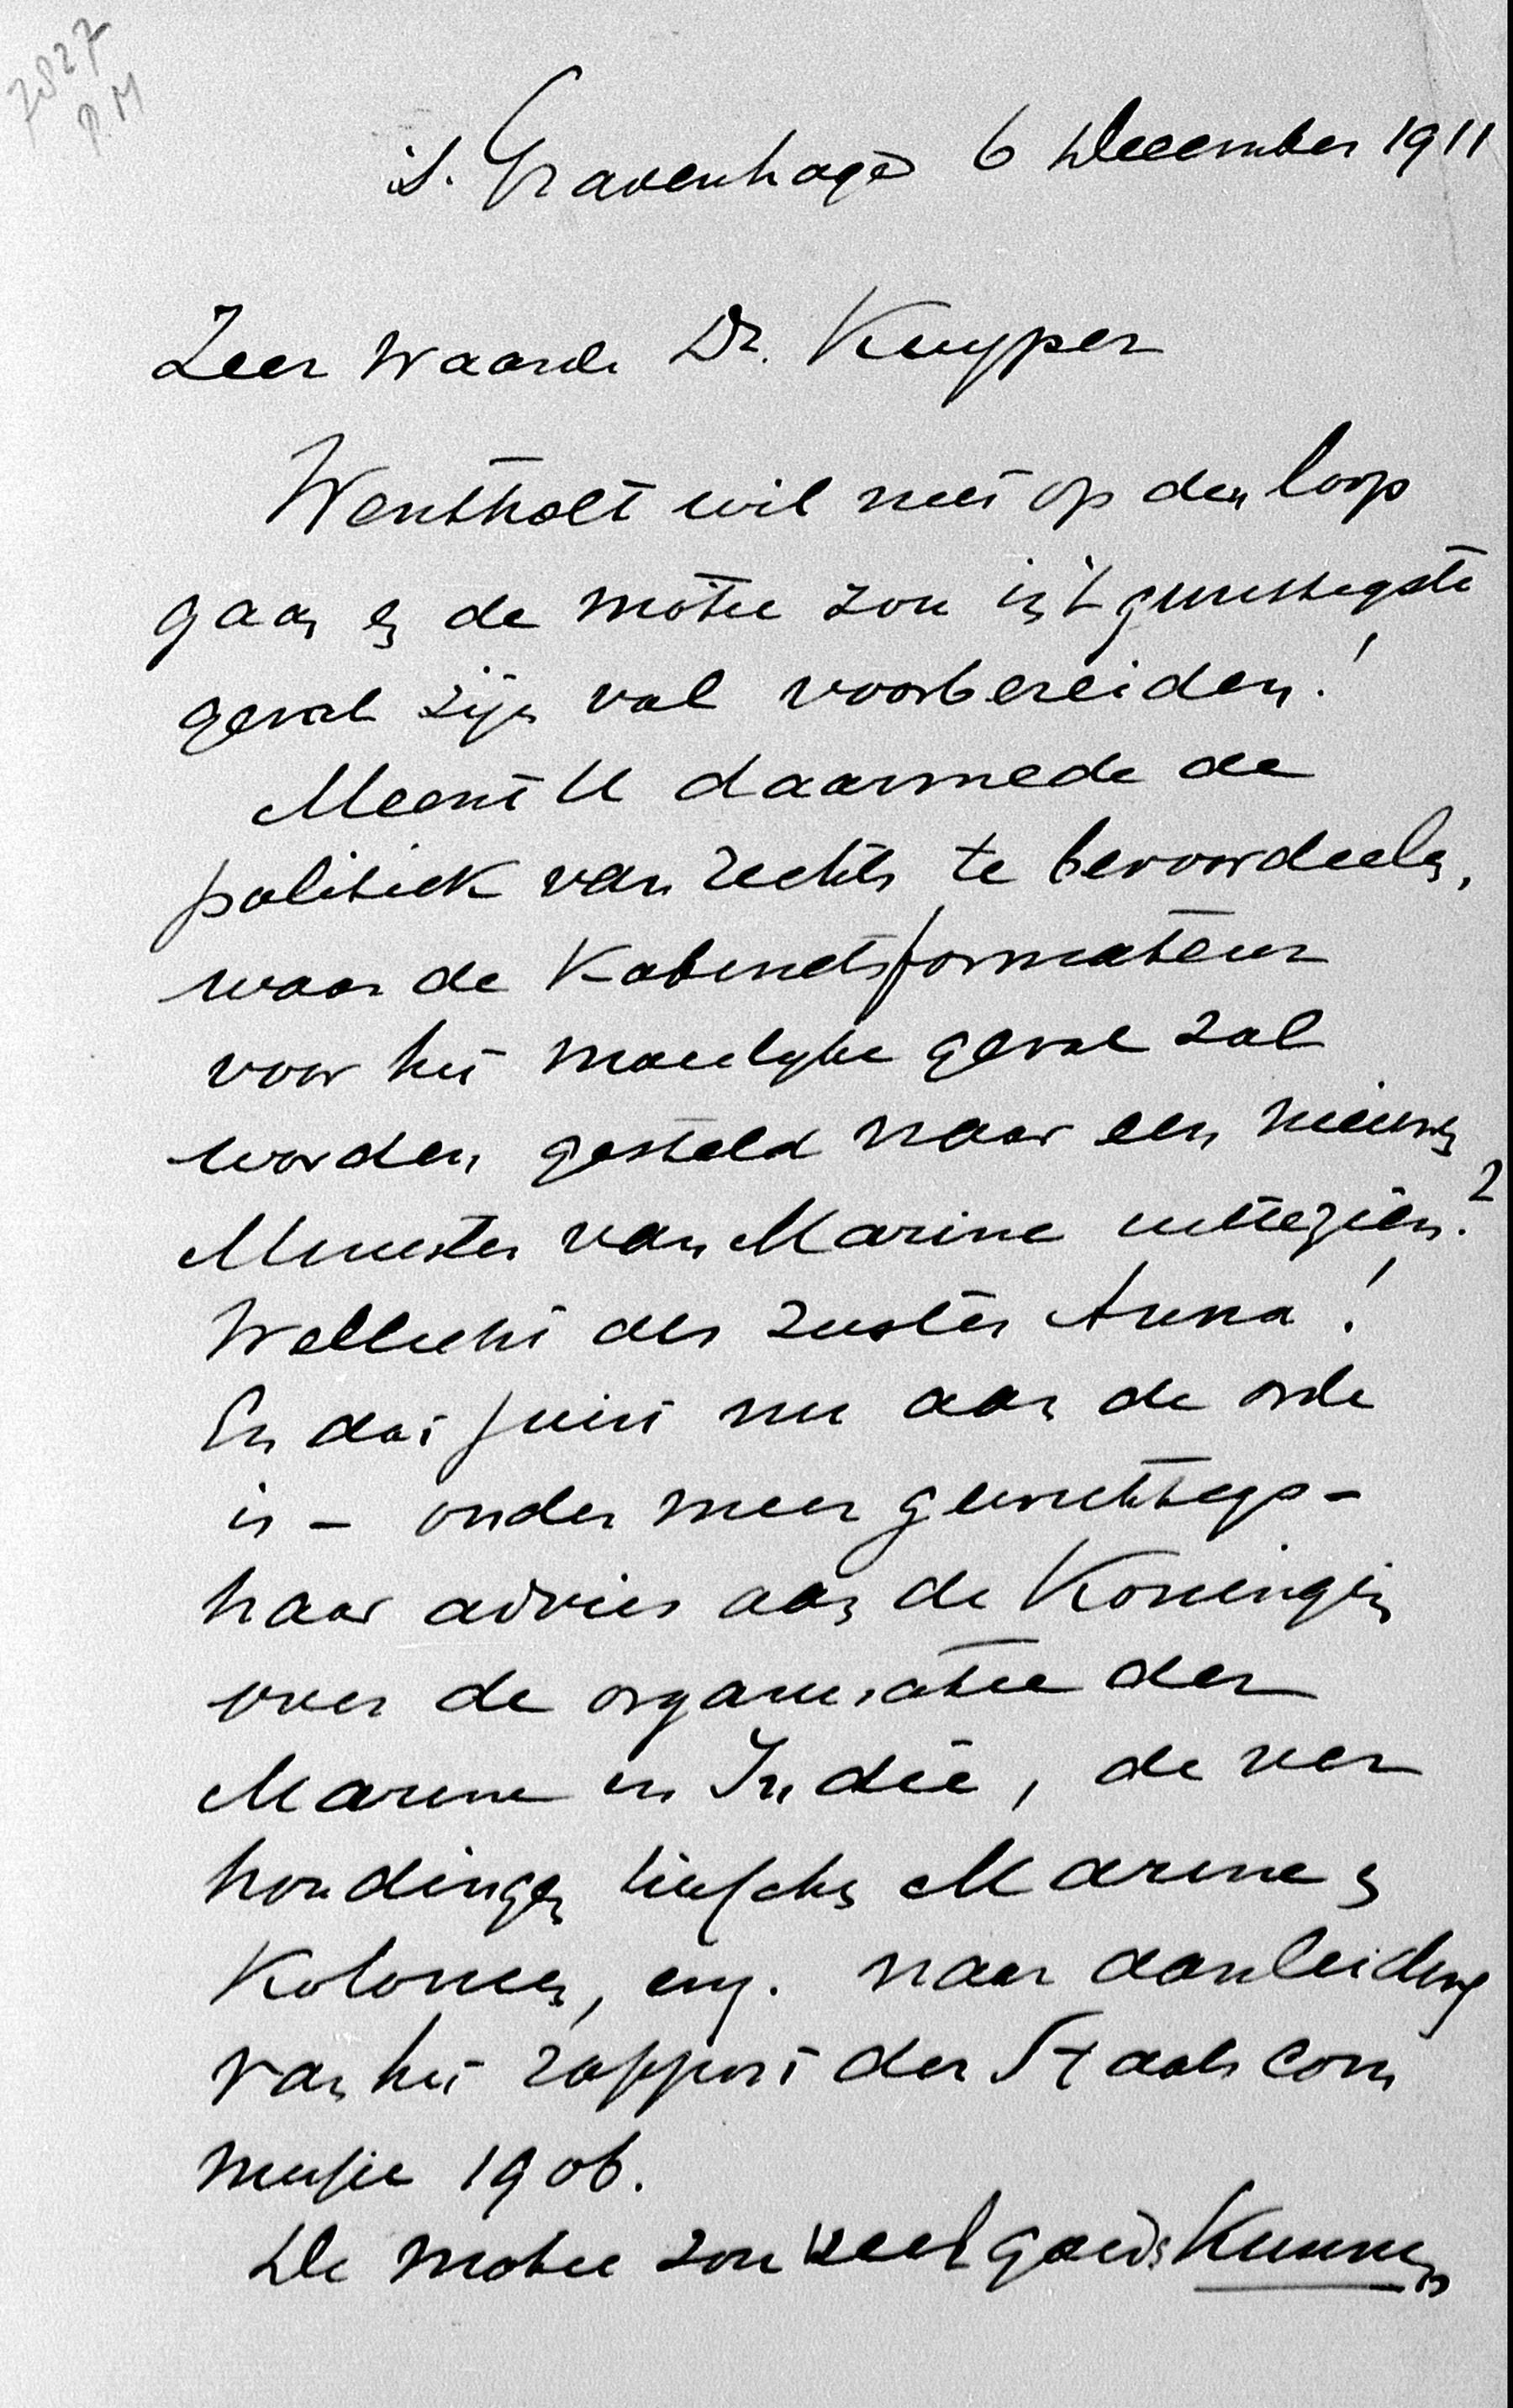 7827
P.M
's. Gravenhage 6 December 1911
Zeer Waarde Dr. Kuyper
Wentholt wil niet op den loop
gaan en de motie zou in 't gunstigste
geval zijn val voorbereiden!
Meent U daarmede de
politiek van rechts te bevoordeelen,
waar de Kabinetsformateur
voor het moeilyke geval zal
worden gesteld naar een nieuwen
Minister van Marine uittezien?
Wellicht als zuster Anna!
En dat juist nu aan de orde
is - onder meer gewichtigs -
haar advies aan de Koningin
over de organisatie der
Marine in Indië, de ver
houdingen tusschen Marine en
Kolonien, enz. naar aanleiding
van het rapport der Staatscom
missie 1906.
De motie zou veel goeds Kunnen